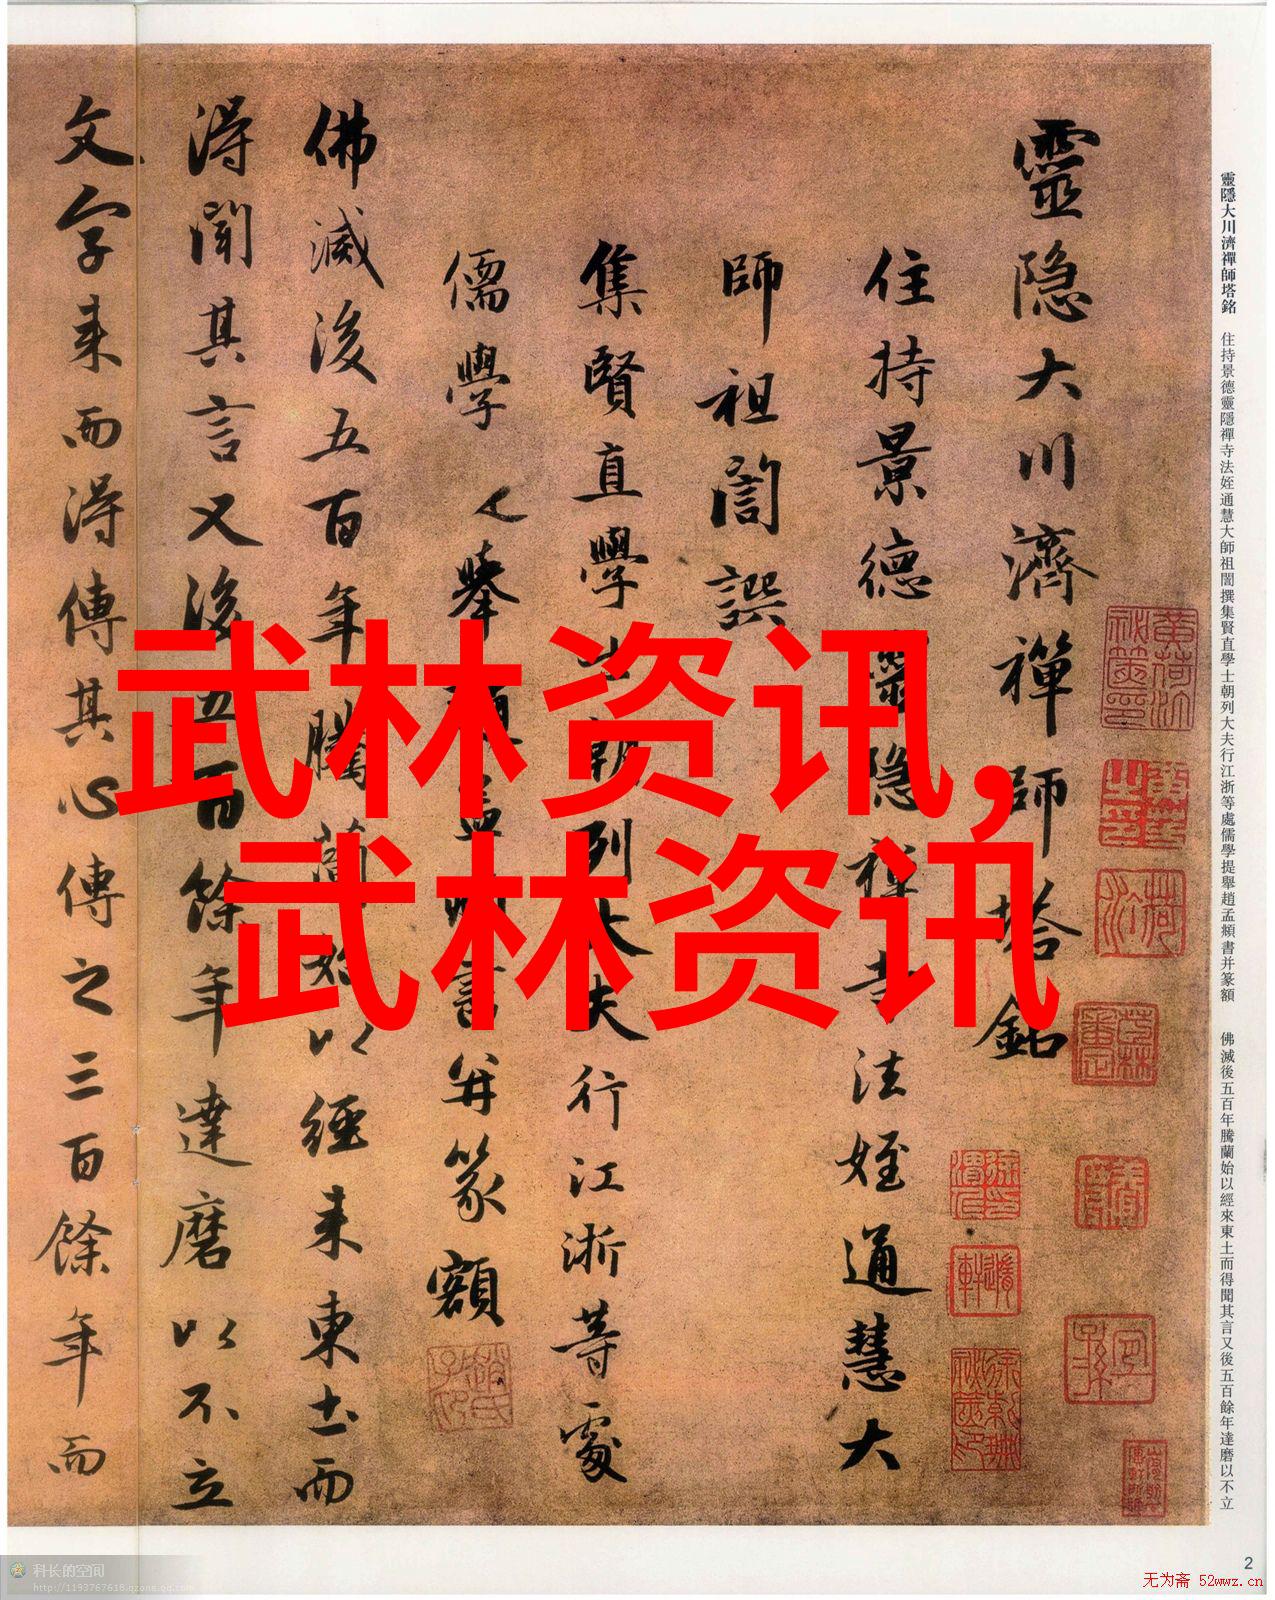 靈隐大川濟禪師塔銘
住持景德靈隐禪寺法姪通慧大
師祖誾譔
集賢直學士朝列大夫行江浙等處
儒學提舉趙孟頫書并篆額
佛滅後五百年騰蘭始以經来東土而
得聞其言又後五百餘年達磨以不立
文字来而得傳其心傳之三百餘年而
武林资讯,
武林资讯
靈隱大川濟禪師塔銘 住持景德靈隱禪寺法姪通慧大師祖誾撰集賢直學士朝列大夫行江浙等處儒學提舉趙孟頫書并篆額 佛滅後五百年騰蘭始以經來東土而得聞其言又後五百餘年達磨以不立
2
科长的空间
http://1193767618.qzone.qq.com
无为斋 52wwz.cn